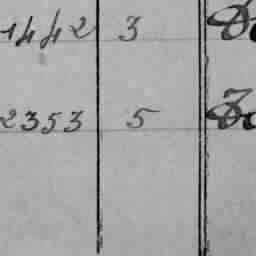 1442 3
2353 5